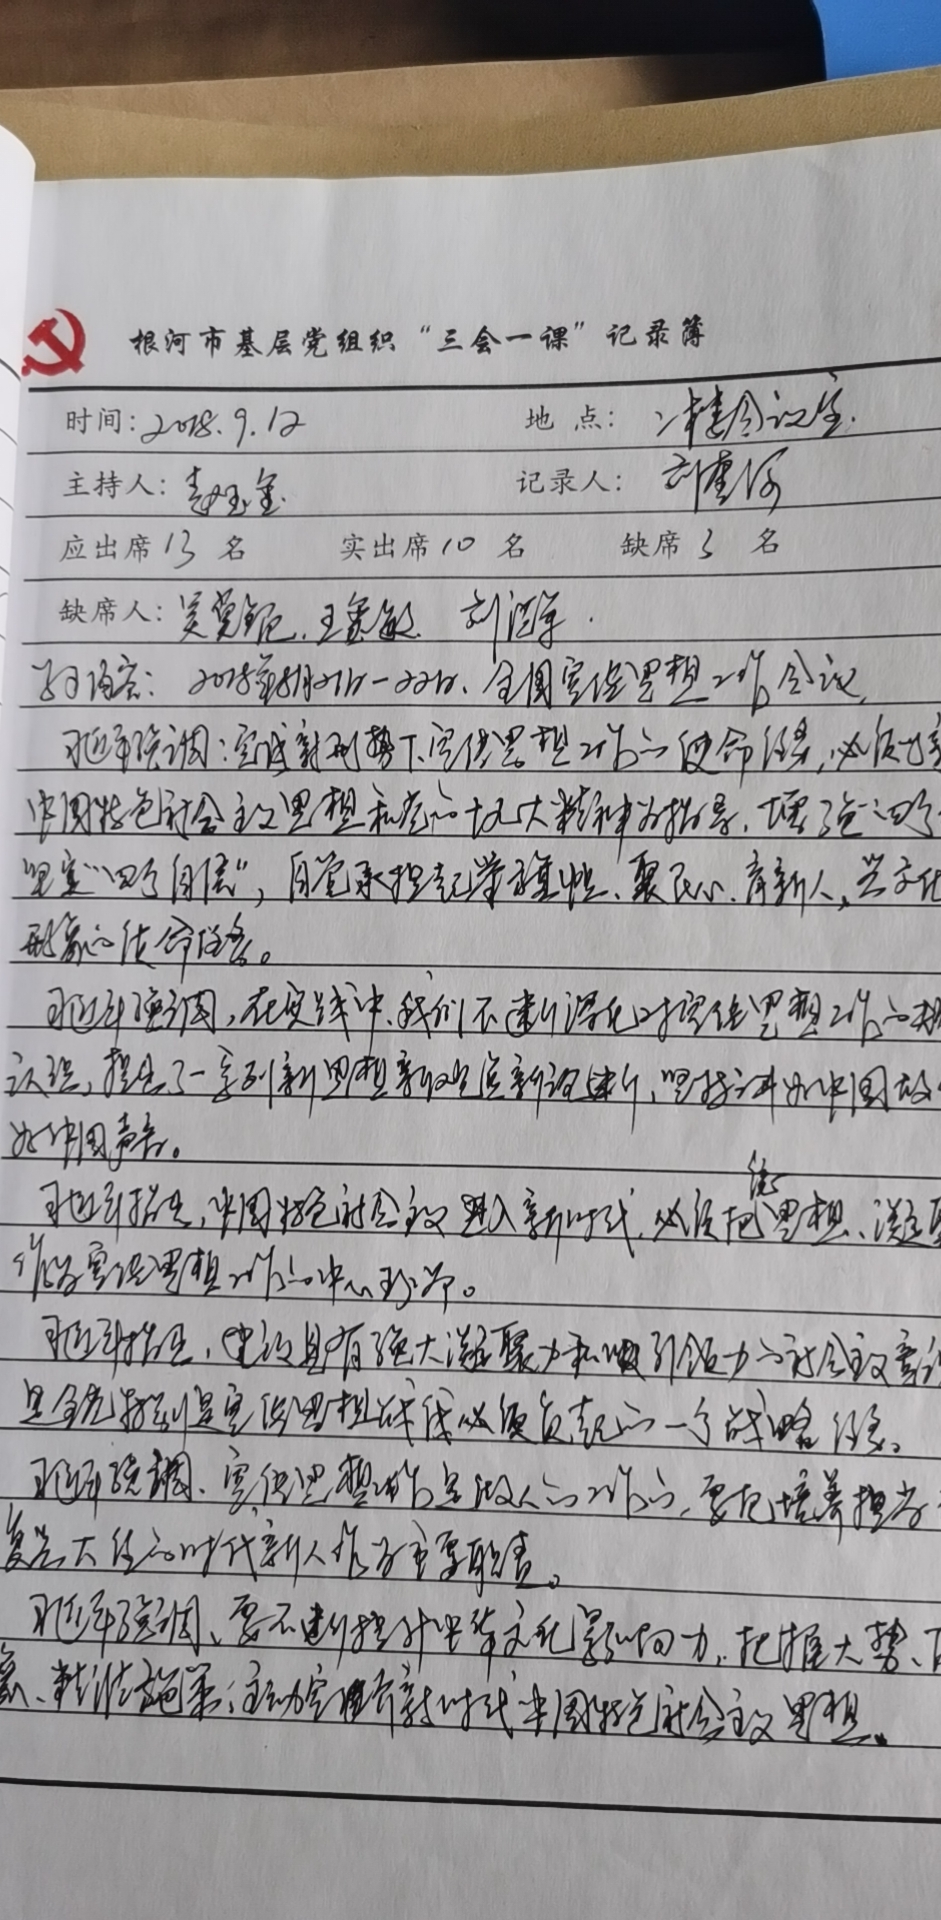 根河市基层党组织“三会一课”记录簿
时间：2018.9.12 地点：二楼会议室.
主持人：赵玉金. 记录人：刘
应出席13名 实出席10名 缺席3名
缺席人： 王鑫敏. 刘海军.
学习内容：2018年8月21日-22日、全国宣传思想工作会议.
习近平强调：完成新形势下宣传思想工作的使命任务，必须以新
中国特色社会主义思想和党的十九大精神为指导，增强“四个
坚定“四个自信”，自觉承担起举旗帜、聚民心、育新人，兴文化
形象的使命任务。
习近平强调，在实践中，我们不断深化对宣传思想工作的规
认识，提出了一系列新思想新观点新论断，坚持讲好中国故
好中国声音。
习近平指出，中国特色社会主义进入新时代，必须把统一思想、凝聚
作为宣传思想工作的中心环节。
习近平指出，建设具有强大凝聚力和吸引领力的社会主义意识
是全党特别是宣传思想战线必须负起的一个战略任务。
习近平强调、宣传思想工作是做人的工作的，要把培养担当
复兴大任的时代新人作为重要职责。
习近平强调、要不断提升中华文化影响力，把握大势、
象、精准施策；主动宣介新时代中国特色社会主义思想。